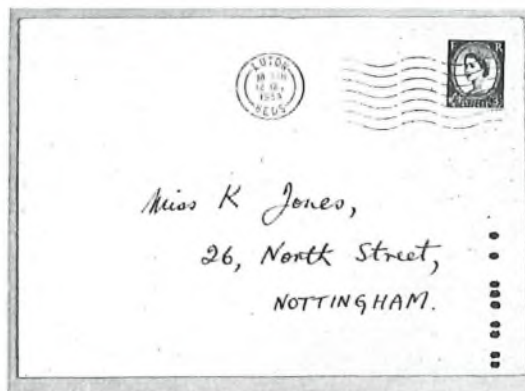 LUTON
BEDS
E R
Miss K Jones,
26, North Street,
NOTTINGHAM.